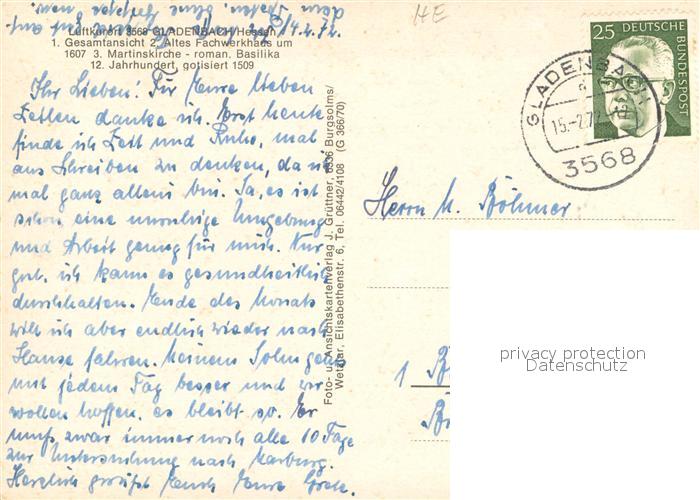 HE
Luftkurort 3568 GLADENBACH/Hessen
14.2.72.
1. Gesamtansicht 2. Altes Fachwerkhaus um
1607 3. Martinskirche - roman. Basilika
12. Jahrhundert, gotisiert 1509
Ihr Lieben! Für Eure lieben
Zeilen danke ich. Erst heute
finde ich Zeit und Ruhe, mal
ans Schreiben zu denken, da ich
mal ganz allein bin. Ja, es ist
schon eine unruhige Umgebung
und Arbeit genug für mich. Nur
gut, ich kann es gesundheitlich
durchhalten. Ende des Monats
will ich aber endlich wieder nach
Hause fahren. Meinem Sohn geht
mit jedem Tag besser und wir
wollen hoffen, es bleibt so. Er
muß zwar immer noch alle 10 Tage
zur Untersuchung nach Marburg.
Herzlich grüßt Euch Eure Grete.
Foto- u. Ansichtskartenverlag J. Grüttner, 6336 Burgsolms/
Wetzlar, Elisabethenstr. 6, Tel. 06442/4108 (G 366/70)
25 DEUTSCHE BUNDESPOST
GLADENBACH
15.-2.72
3568
Herrn M. Böhmer
1
privacy protection
Datenschutz